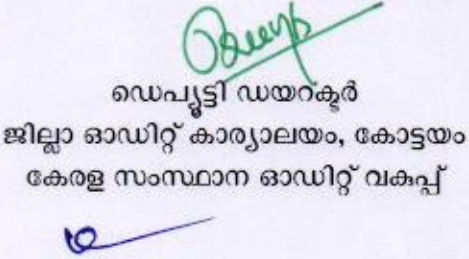 ഡെപ്യൂട്ടി ഡയറക്ടർ
ജില്ലാ ഓഡിറ്റ് കാര്യാലയം, കോട്ടയം
കേരള സംസ്ഥാന ഓഡിറ്റ് വകുപ്പ്